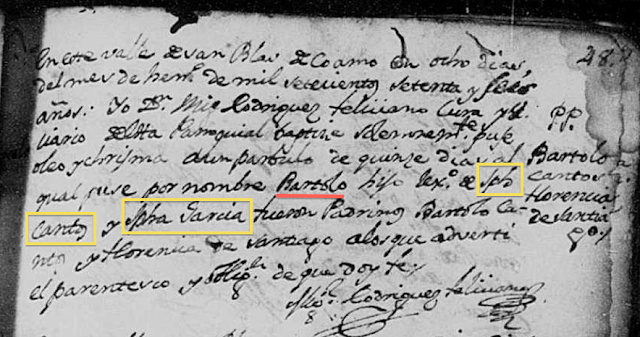 48.
En este valle de San Blas de Coamo en ocho dias
del mes de hen.o de mil setecientos setenta y seis
años: Yo D.n Mig.l Rodriguez Feliciano Cura y
cario de esta Parroquial baptize solemnem.te puse
oleo y chrisma a un parbulo de quinze dias al
qual puse por nombre Bartolo hijo lex.o de Jph
Cantos y Jpha Garcia fueron Padrinos Bartolo Ca-
ntos y Florencia de Santiago a los que adverti
el parentesco y oblig.n de que doy fe
Mig.l Rodriguez Feliciano
PP.
Bartolo
Cantos
Florencia
de Santia
go